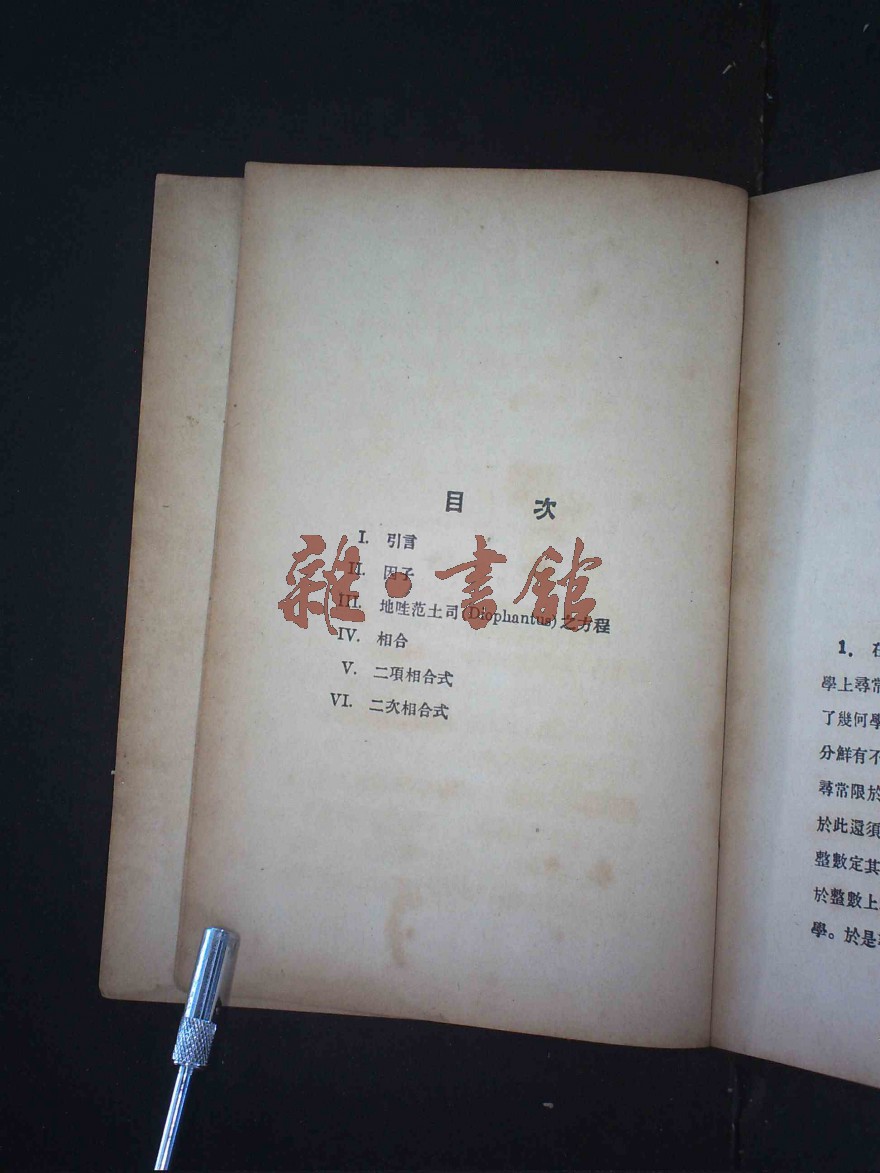 目 次
I. 引言
II. 因子
III. 地哇范土司(Diophantus)之方程
IV. 相合
V. 二項相合式
VI. 二次相合式
雜·書館
1. 在
學上尋常
了幾何學
分鮮有不
尋常限於
於此還須
整數定其
於整數上
學。於是